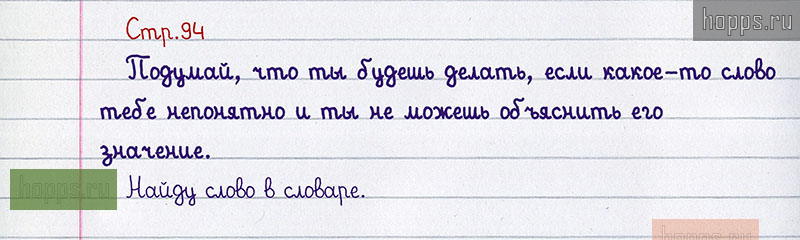 hopps.ru
Стр.94
Подумай, что ты будешь делать, если какое-то слово
тебе непонятно и ты не можешь объяснить его
значение.
hopps.ru
Найду слово в словаре.
hopps.ru